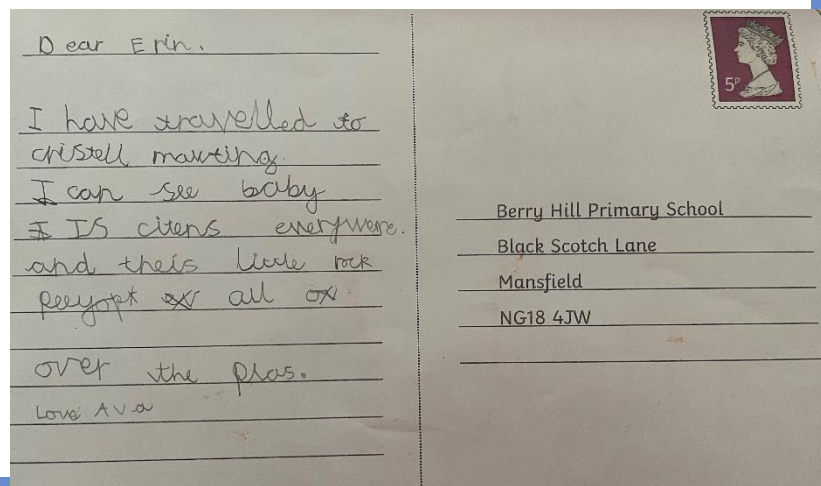 Dear Erin.
I have travelled to
cristell mawting.
I can see baby
IS citens everywere.
and theis little rock
peeyopt all
over the plas.
Love Ava
5P
Berry Hill Primary School
Black Scotch Lane
Mansfield
NG18 4JW